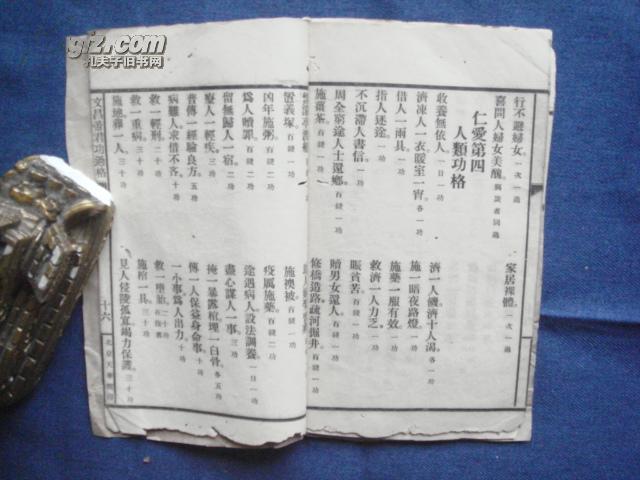 gjz.com
孔夫子旧书网
行不避婦女。一次一過
家居裸體。一次一過
喜問人婦女美醜。
仁愛第四
人類功格
收養無依人。一日一功
濟一人饑濟十人渴。各一功
濟凍人一衣暖室一宵。各一功
施一暗夜路燈。一功
借人一雨具。一功
施藥一服有效。一功
指人迷途。一功
救濟一人力乏。一功
不沉滯人書信。一功
賑貧苦。百錢一功
周全窮途人士還鄉。百錢一功
贖男女還人。百錢一功
施薑茶。百錢一功
修橋造路疏河掘井。百錢一功
置義塚。百錢一功
施襖被。百錢一功
凶年施粥。百錢二功
疫厲施藥。百錢二功
為人贖罪。百錢二功
途遇病人設法調養。一日一功
留無歸人一宿。二功
盡心謀人一事。三功
療人一輕疾。三功
掩一暴露棺埋一白骨。各五功
普傳一經驗良方。五功
傳一人保益身命事。十功
病難人求惜不吝。十功
一小事為人出力。十功
救一輕刑。二十功
救一墮胎。二十功
救一重刑。三十功
施棺一具。三十功
施地葬一人。三十功
見人侵陵孤寡竭力保護。三十功
文昌帝君功過格
十六
北京天華館印